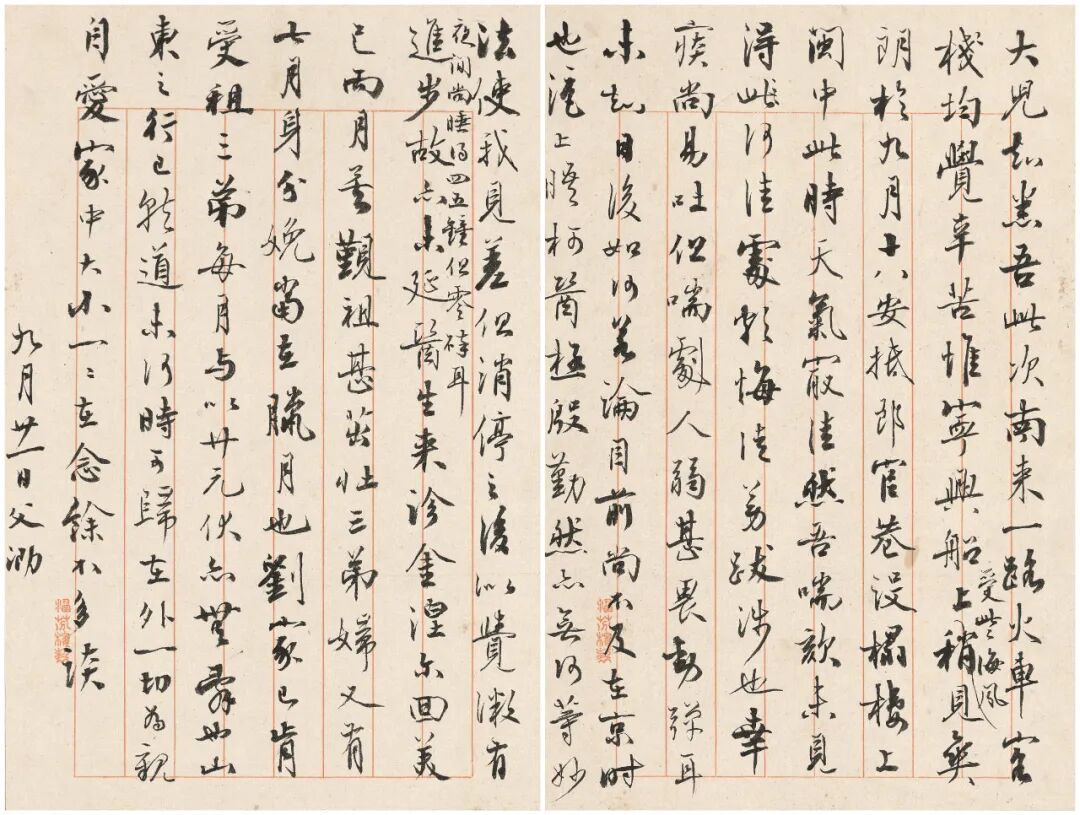 大兒知悉吾此次南来一路火車客
棧均覺辛苦惟寧興船上稍見爽
受些海風
朗於九月十八安抵郎官巷設榻樓上
閩中此時天氣最佳然吾喘欬未見
得些何佳處頗悔徒勞跋涉也幸
痰尚易吐但喘劇人弱甚畏動彈耳
未知日後如何若論目前尚不及在京時
也滬上晤柯醫極殷勤然亦無何等妙
法使我見差但消停之後似覺漸有
夜間尚睡得四五鐘但零碎耳
進步故亦未延醫生来診金涅尔回美
已兩月矣覲祖甚茁壯三弟婦又有
七月身分娩當在臘月也劉家已肯
受租三弟每月与以廿元伙亦無辭也山
東之行已就道未何時可歸在外一切為親
自愛家中大小一〻在念餘不多談
九月廿一日父泐